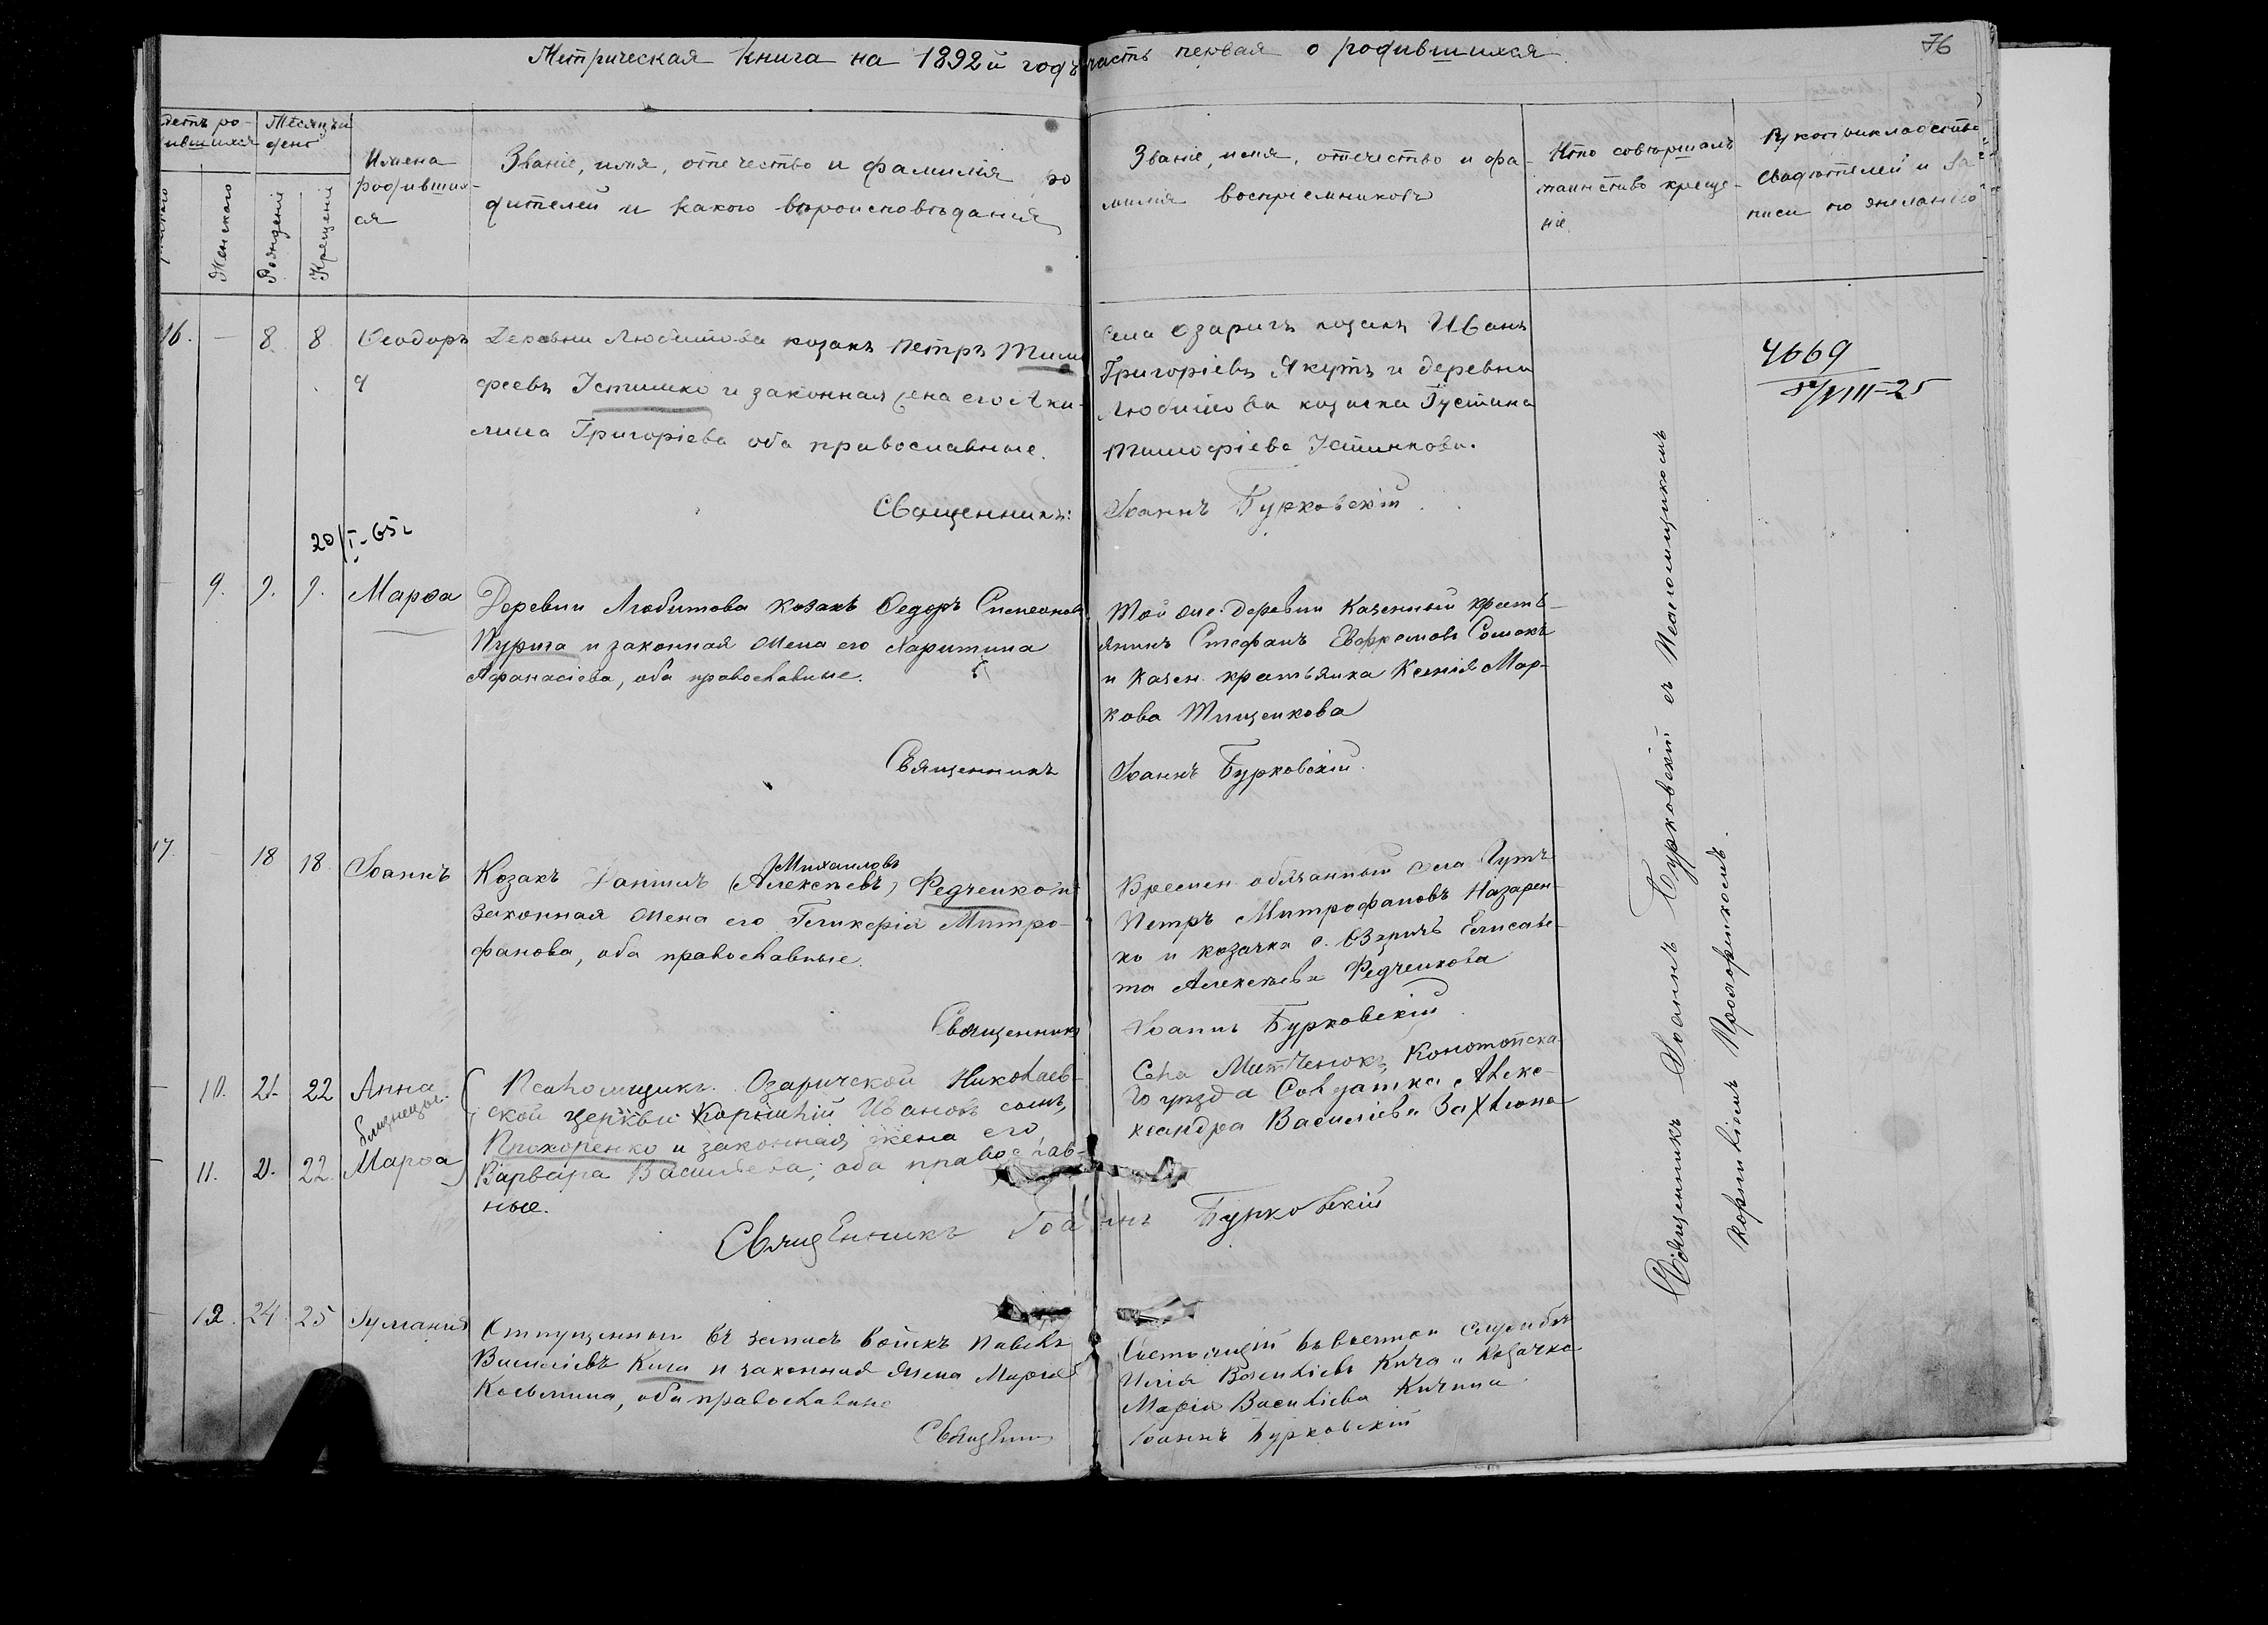 Метрическая книга на 1892й годъ часть первая о родившихся
76
Счетъ ро-
дившихся
Мѣсяцъ и
день
Женскаго
Рожденія
Крещенія
Имена
родивших-
ся
Званіе, имя, отечество и фамилія ро
дителей и какого вѣроисповѣданія
Званіе, имя, отечество и фа-
милія воспріемниковъ
Кто совершалъ
таинство креще-
нія.
Рукоприкладство
свидѣтелей и
писи по желанію
16. — 8. 8. Ѳеодоръ
Деревни Любитова козакъ Петръ Тимо
феевъ Устимко и законная жена его Аки-
лина Григоріева оба православные.
Священникъ:
Села Озаричъ козакъ Иванъ
Григоріевъ Якутъ и деревни
Любитова козачка Іустина
Тимофіева Устимкова.
Іоаннъ Бурковскій.
4669
VIII-25
20/I-65г
9. 9. 9. Марѳа
Деревни Любитова козакъ Ѳедоръ Симеоновъ
Пурта и законная жена его Харитина
Афанасіева, оба православные.
Священникъ
Той же деревни казенный кресть-
янинъ Стефанъ Евфремовъ Сошокъ
и казен. крестьянка Ксенія Мар-
кова Тищенкова
Іоаннъ Бурковскій.
17. — 18 18 Іоаннъ
Михаиловъ
Козакъ Даніилъ (Алексѣевъ) Федченко и
законная жена его Гликерія Митро-
фанова, оба православные.
Священникъ
Времен. обязанный села Гутъ
Петръ Митрофановъ Назарен-
ко и козачка с. Озаричъ Елисаве-
та Алексѣева Федченкова
Іоаннъ Бурковскій.
— 10. 21. 22 Анна
близнецы.
11. 21. 22. Марѳа
Псаломщикъ Озаричской Николаев-
ской церкви Корнилій Ивановъ сынъ,
Прохоренко и законная жена его
Варвара Васильева; оба православ-
ные.
Священникъ Іоаннъ Бурковскій
Села Митченокъ, Конотопска
го уѣзда Солдатка Алекс-
ксандра Василіева Захлюпа
— 12. 24. 25 Іуліанія
Отпущенный въ запасъ войскъ Павелъ
Василіевъ Кича и законная жена Марѳа
Косьмина, оба православные
Священникъ
Состоящій въ военной службѣ
Илія Василіевъ Кича и козачка
Марія Василіева Кичина
Іоаннъ Бурковскій
Священникъ Іоаннъ Бурковскій съ Псаломщикомъ
Корниліемъ Прохоренкомъ.